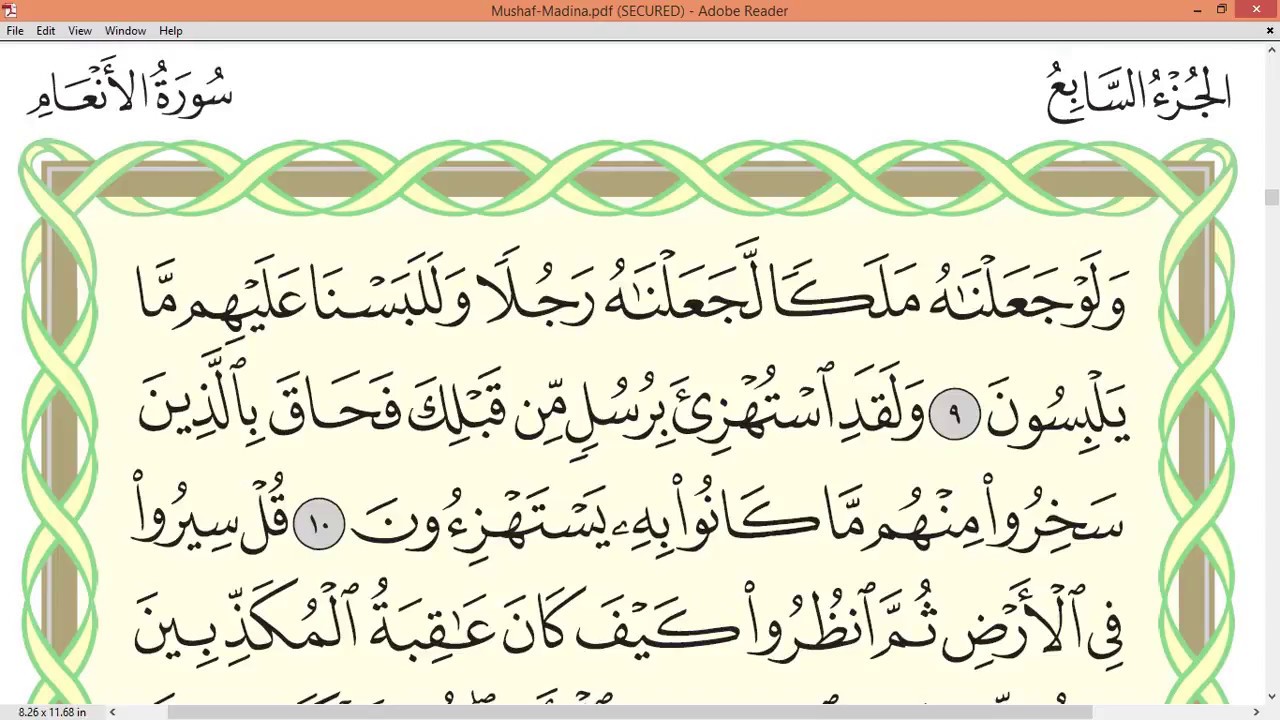 Mushaf-Madina.pdf (SECURED) - Adobe Reader
File Edit View Window Help
سُورَةُ الأَنْعَامِ الجُزْءُ السَّابِعُ
وَلَوۡ جَعَلۡنَٰهُ مَلَكٗا لَّجَعَلۡنَٰهُ رَجُلٗا وَلَلَبَسۡنَا عَلَيۡهِم مَّا
يَلۡبِسُونَ ٩ وَلَقَدِ ٱسۡتُهۡزِئَ بِرُسُلٖ مِّن قَبۡلِكَ فَحَاقَ بِٱلَّذِينَ
سَخِرُواْ مِنۡهُم مَّا كَانُواْ بِهِۦ يَسۡتَهۡزِءُونَ ١٠ قُلۡ سِيرُواْ
فِي ٱلۡأَرۡضِ ثُمَّ ٱنظُرُواْ كَيۡفَ كَانَ عَٰقِبَةُ ٱلۡمُكَذِّبِينَ
8.26 x 11.68 in